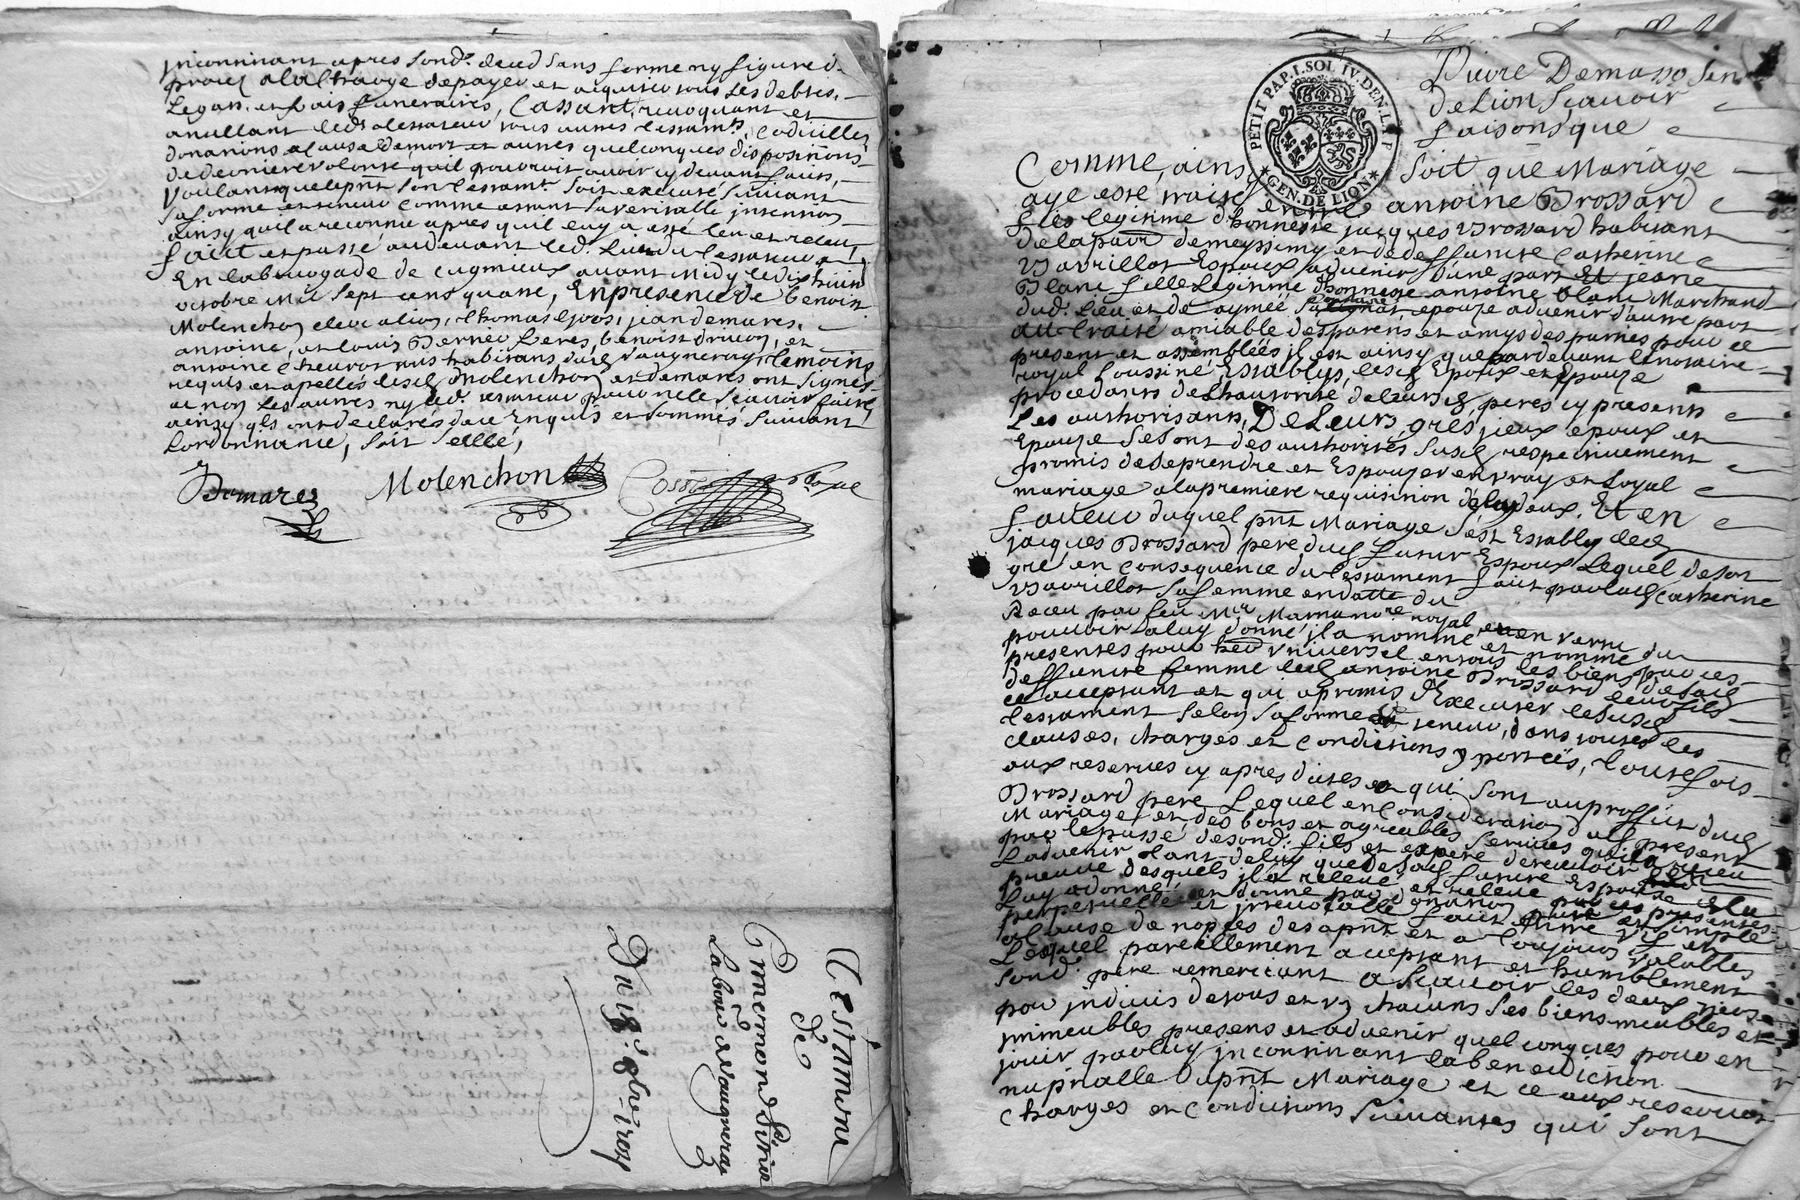 jncontinant apres sond. deced sans forme ny figure de
proces a la charge de payer et acquiter tous ses debtes,
Legats et frais funeraires, Cassant, revoquant et
anullant led. testateur tous autres testamts, codicilles
donations a cause de mort et autres quelconques dispositions
de derniere volonté quil pourroit avoir cy devant faits,
Voulant que le pnt son testamt soit executé suivant
sa forme et teneur comme estant sa veritable jntention
ainsy quil a reconnu apres quil luy a esté leu et releu,
faict et passé au devant led. Lieu du testateur
En la bourgade de avant midy le dix huit
octobre mil sept cens quatre, En presence de benoist
Molenchon, Thomas, jean demares,
antoine, et Louis freres, benoist et
antoine habitans dud. vaugneray, temoins
requis et apellés lesd. Molenchon et demares ont signé
et non les autres ny led. testateur pour ne le sçavoir faire
ainsy qls ont declarés de ce Enquis et sommés suivant
Lordonnance, soit scellé,
Demares Molenchon
Testament
de
La bour vaugneray
Du 18e 8bre 1704
PETIT PAP. I. SOL IV. DEN. L. F
GEN. DE LION
Pierre
de Lion Scavoir
faisons que
Comme, ainsy soit que Mariage
aye esté traité entre antoine Brossard
fils legitime dhonneste jacques Brossard habitant
de la parr. de meyssimy et de deffuncte Catherine
Epoux advenir d'une part Et jeane
Blanc fille Legitime dhonneste antoine blanc Marchand
dud. Lieu et de aymée epouze advenir d'autre part
au traité amiable desparens et amys des parties pour ce
present et assemblées jl est ainsy que pardevant le notaire
royal soussiné, Establys, lesd. Epoux et Epouze
procedants de Lhautorité de leursd. peres cy presents
Les authorisants, De Leurs grés jceux epoux et
Epouze se sont des authorités susd. respectivement
promis de se prendre et Espouzer en vray et Loyal
mariage a la premiere requisition de lun deux. Et en
faveur duquel pnt Mariage s'est Estably led.
jacques Brossard pere dud. futur Espoux Lequel de son
gré en consequence du testament fait par lad. Catherine
sa femme en datte du
Receu par feu Mre re royal en vertu du
pouvoir a luy donné jl a nommé et nomme par ces
presentes pour hed. vniversel en tous les biens de lad.
deffuncte femme led. antoine Brossard leur fils
ce acceptant et qui a promis d'Executer le susd.
testament selon sa forme et teneur, dans toutes les
clauses, charges et conditions y portées, toutefois
aux reserves cy apres dittes et qui sont au proffit dud.
Brossard pere Lequel en Consideration dud. present
Mariage, et des bons et agreables services quil a receu
par le passé de sond. fils et espere de recevoir a
Ladvenir tant de luy que de sad. future Espouze de la
preuve desquels jl a relevé et releve par ces presentes
Luy a donné et donne par donation pure et simple
perpetuelle et jrrevocable faite entre vifs et
a cause de nopces des apnt et a toujours valables
Lequel pareillement acceptant et humblement
sond. pere remerciant a scavoir les deux tiers
par jndivis de tous et vn chacuns ses biens meubles et
jmmeubles presens et advenir quelconques pour en
jouir par luy jncontinant la benediction
nuptialle dupnt Mariage et ce aux reserves
charges et conditions suivantes qui sont